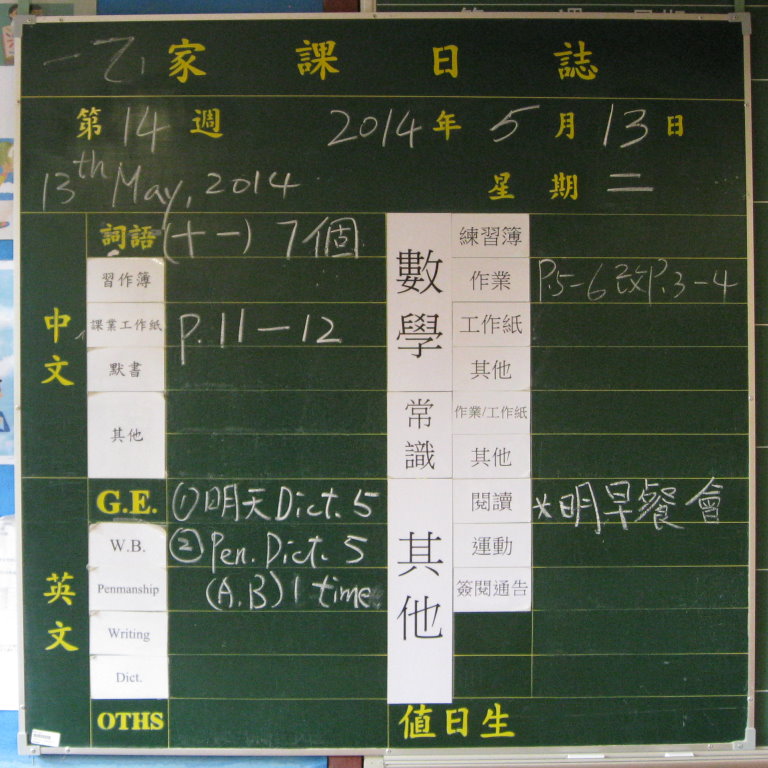 一乙 家課日誌
第14週 2014年5月13日
13th May, 2014 星期二
中文
詞語 (十一) 7個
習作簿
課業工作紙 P.11-12
默書
其他
英文
G.E. ①明天Dict. 5
W.B. ②Pen. Dict. 5
Penmanship (A.B) 1 time
Writing
Dict.
OTHS
數學
練習簿
作業 P.5-6 改P.3-4
工作紙
其他
常識
作業/工作紙
其他
其他
閱讀 *明早餐會
運動
簽閱通告
值日生